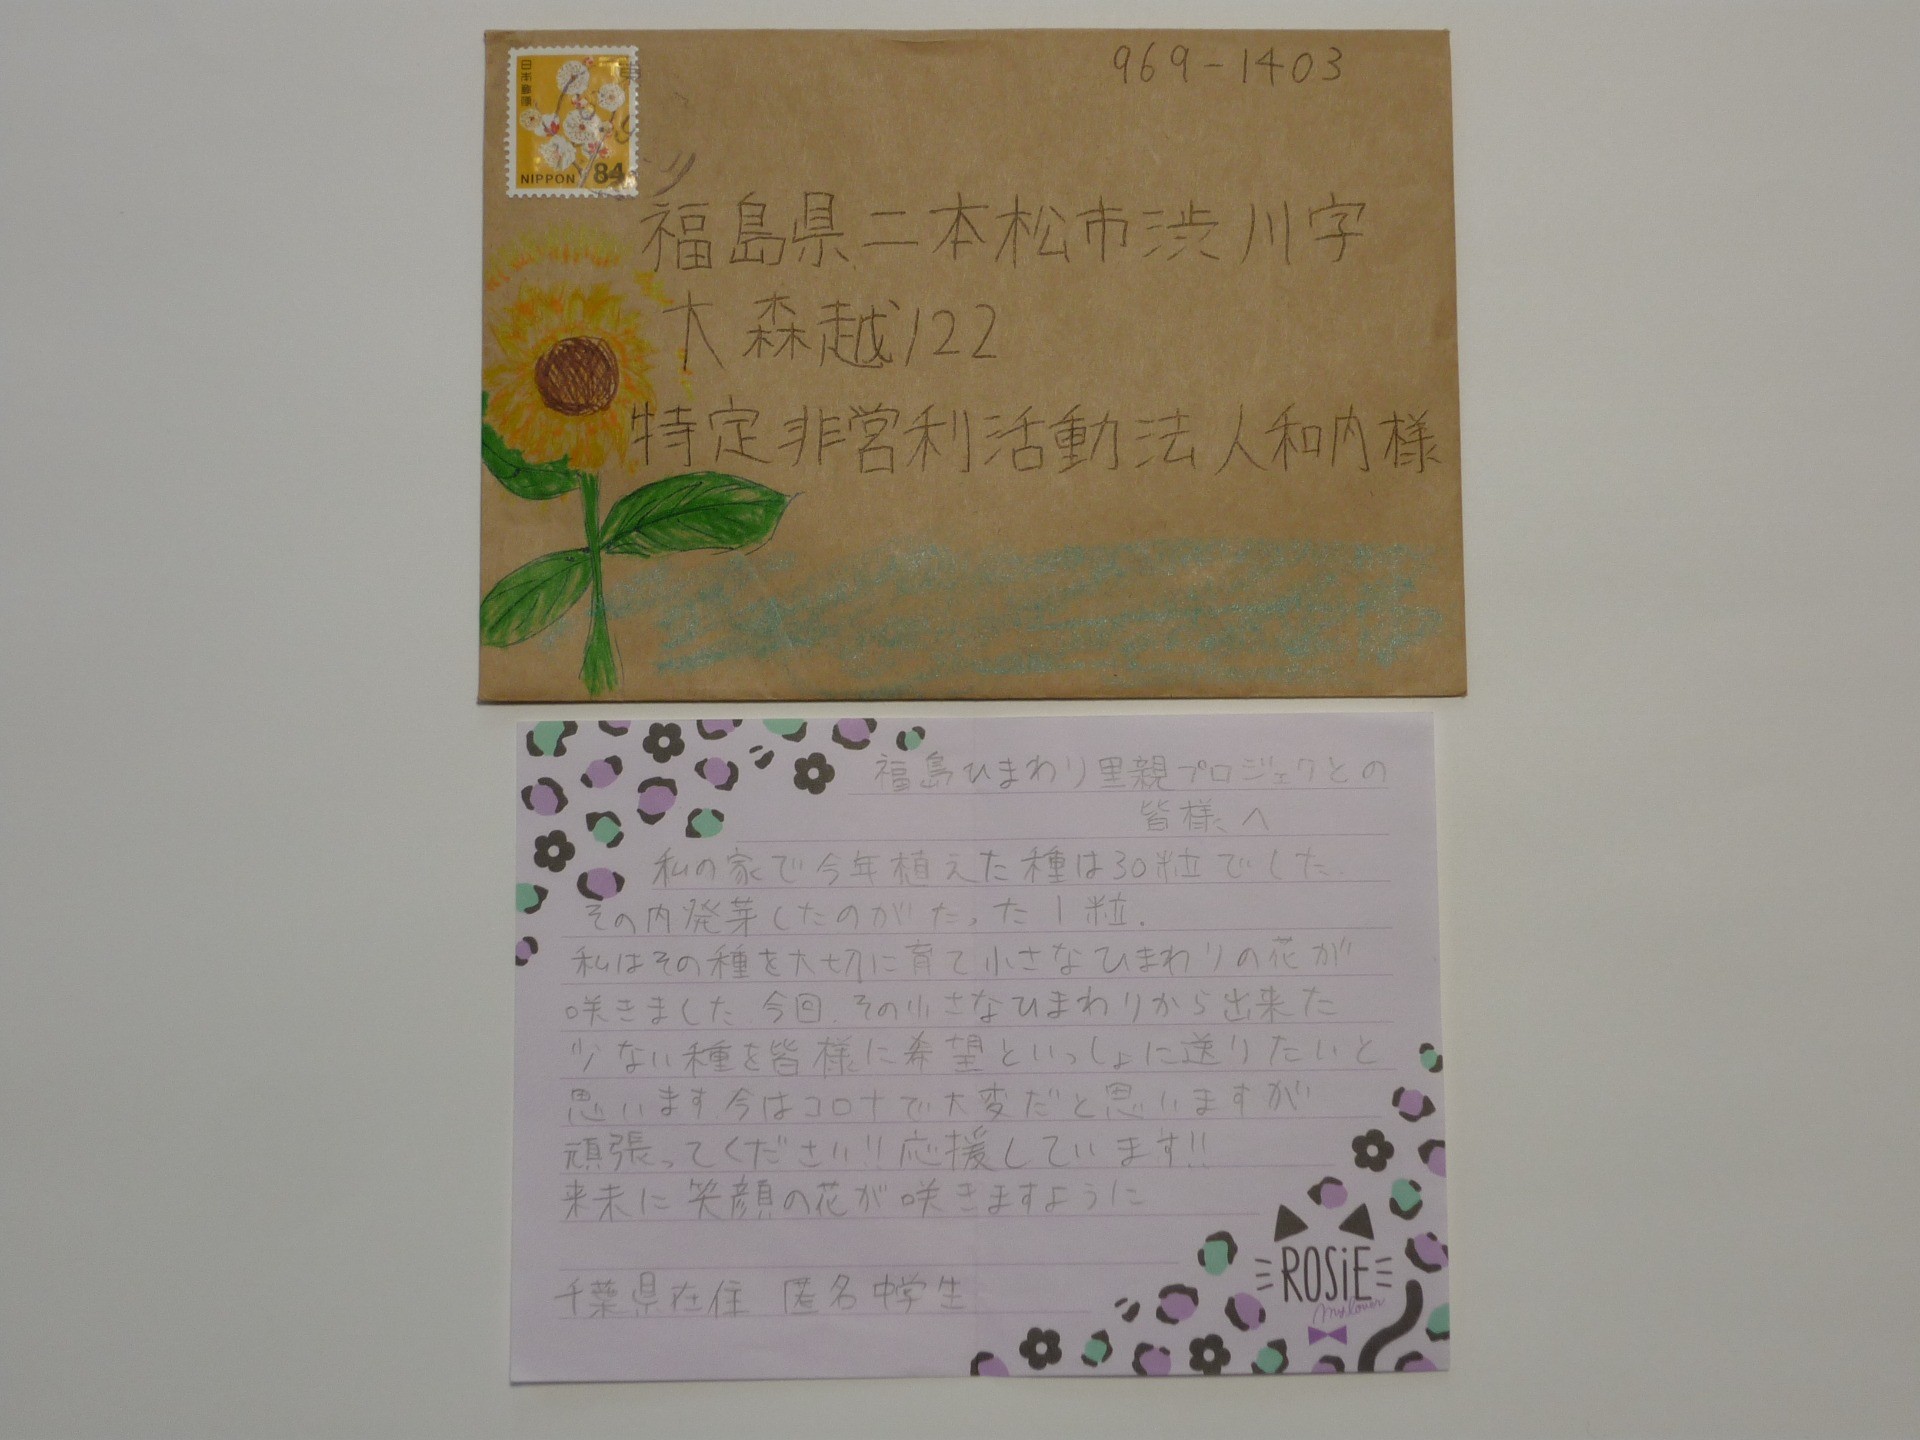 日本郵便
NIPPON 84
969-1403
福島県二本松市渋川字
大森越122
特定非営利活動法人和内様
福島ひまわり里親プロジェクとの
皆様へ
私の家で今年植えた種は30粒でした.
その内発芽したのがたった1粒.
私はその種を大切に育て小さなひまわりの花が
咲きました.今回.その小さなひまわりから出来た
少ない種を皆様に希望といっしょに送りたいと
思います.今はコロナで大変だと思いますが
頑張ってください!!応援しています!!
来未に笑顔の花が咲きますように
千葉県在住 匿名中学生
ROSiE